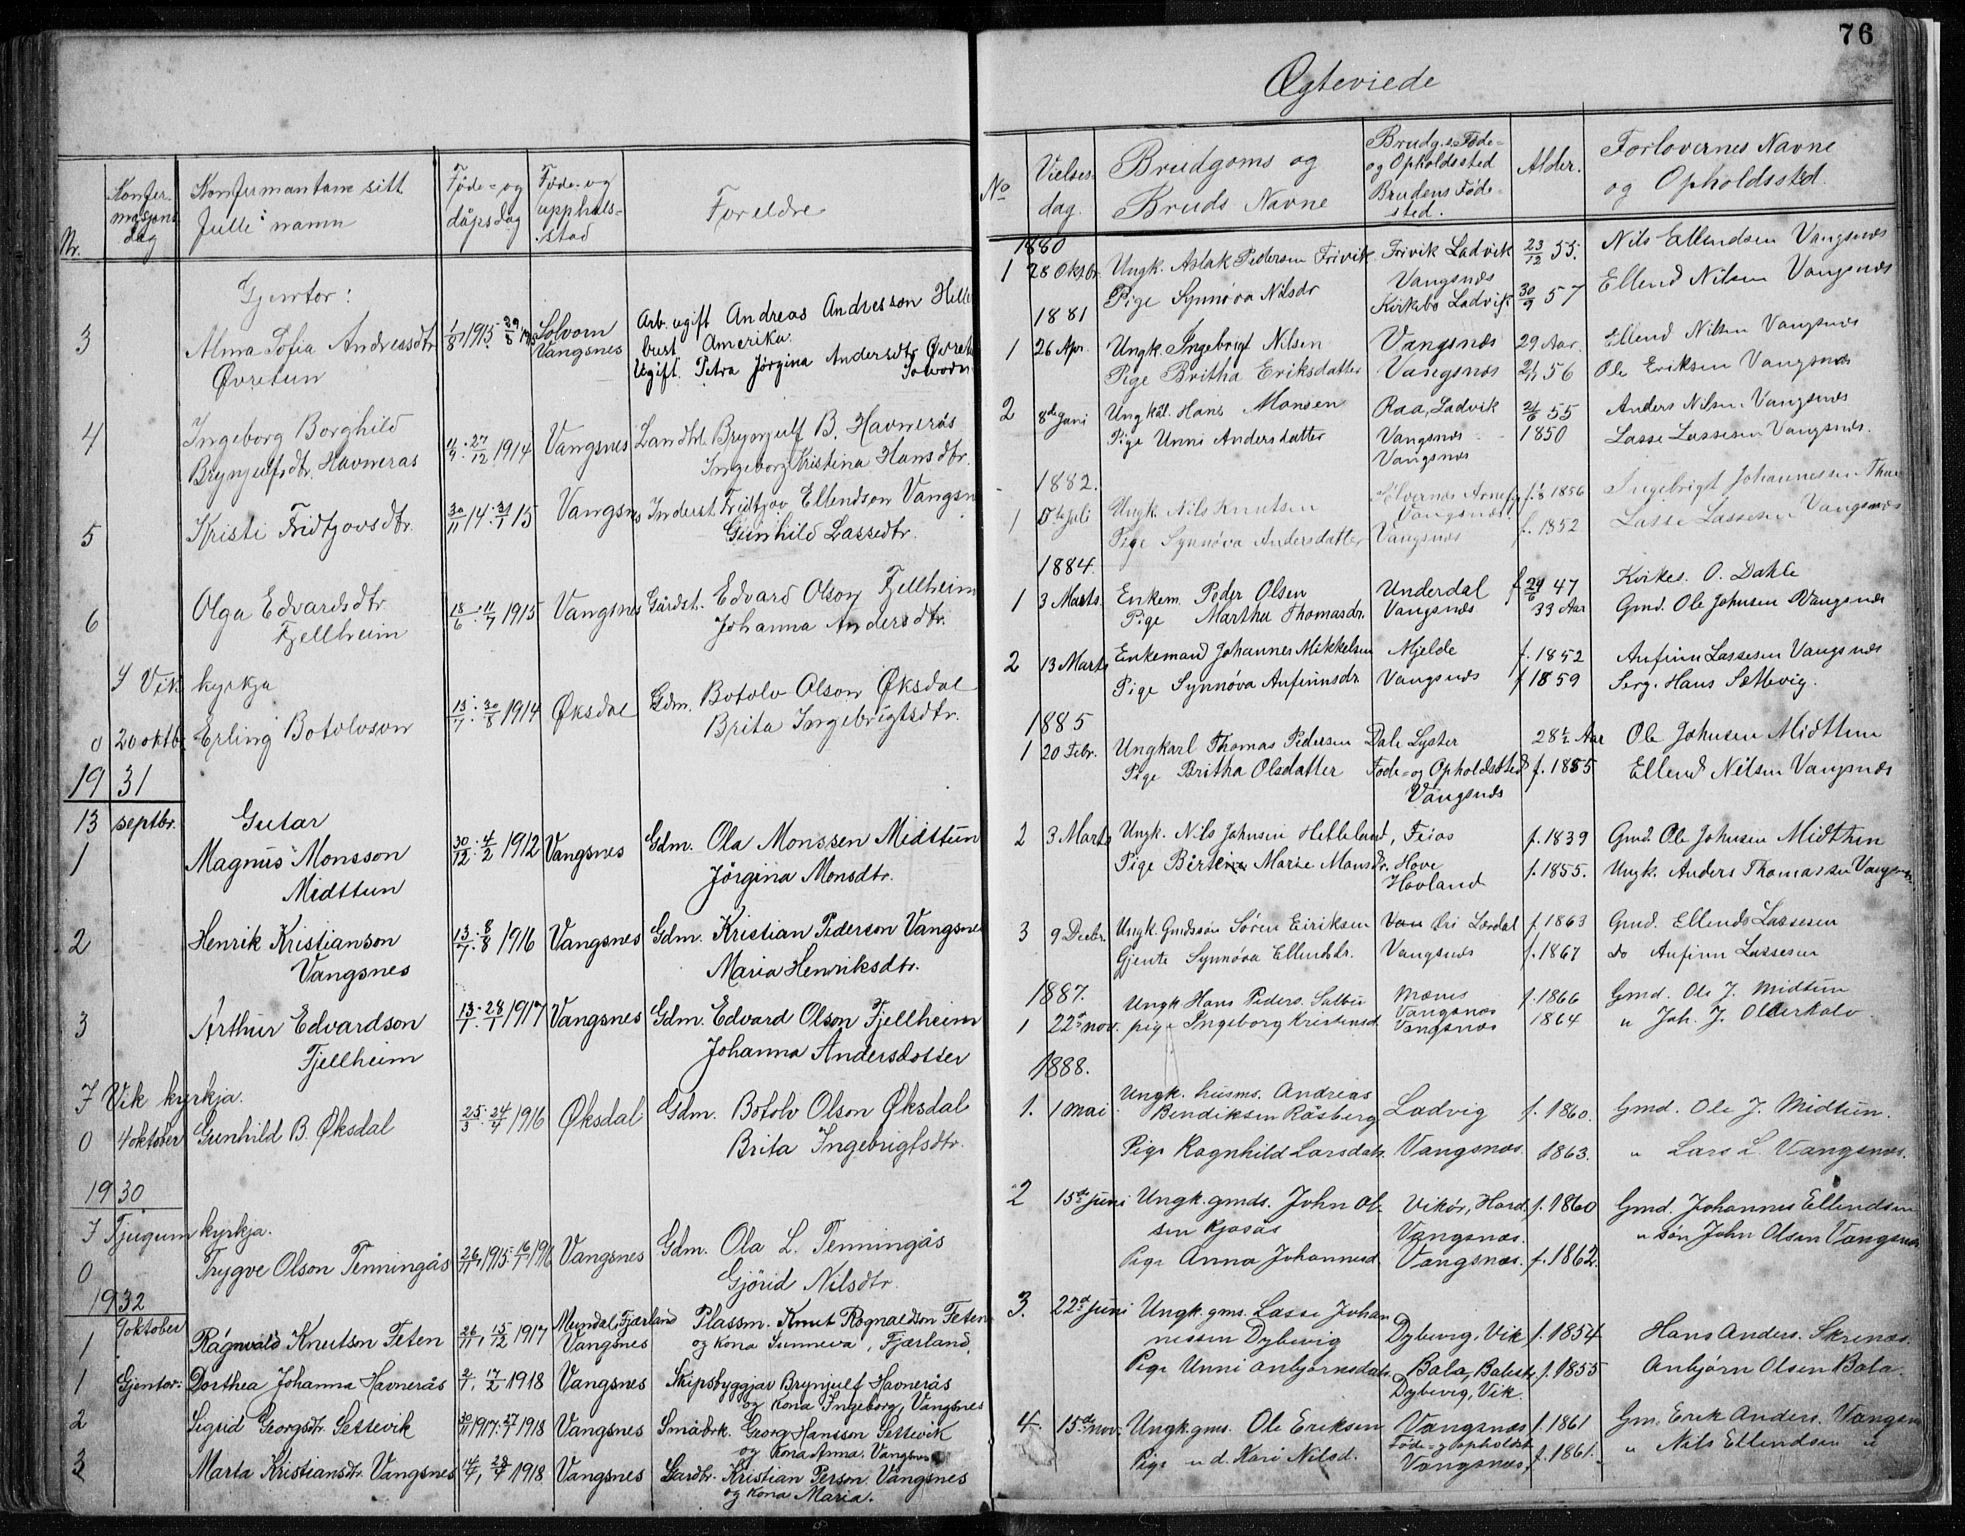 Nr.
Konfermasjons dag
Konfirmantane sitt fulle namn
Føde- og dåpsdag
Føde- og upphalsstad
Foreldre
Gjentor:
3 Alma Sofia Andreasdtr 1/8 1915 29/8 1915 Solvorn Arb. ugift Andreas Andresson Helle
Øvretun Vangsnes bust. Amerika.
Ugift. Petra Jørgina Andersdtr Øvretun
Solvorn
4 Ingeborg Borghild Vangsnes Landhl. Brynjulf B. Havnerås
Brynjulfsdtr. Havnerås 27/12 1914 Ingeborg Kristina Hansdtr.
5 Kristi Fridtjovsdtr. 30/11 14. 31/1 15 Vangsnes Inderst Fridtjov Ellendson Vangsn
Gunhild Lassedtr.
6 Olga Edvardsdtr 18/6. 11/7 1915 Vangsnes Gårdst. Edvard Olson Fjellheim
Fjellheim Johanna Andersdtr.
I Vik kyrkja
0 20 oktb. Erling Botolvson 13/7. 30/8 1914 Øksdal Gdm. Botolv Olson Øksdal
Brita Ingebrigtsdtr.
1931
13 septbr. Gutar
1 Magnus Monsson 30/12. 4/2 1912 Vangsnes Gdm. Ola Monssen Midttun
Midttun Jørgina Monsdtr.
2 Henrik Kristianson 13/7. 8/8 1916 Vangsnes Gdm. Kristian Pederson Vangsnes
Vangsnes Maria Henriksdtr.
3 Arthur Edvardson 13/1. 28/1 1917 Vangsnes Gdm. Edvard Olson Fjellheim
Fjellheim Johanna Andersdotter
I Vik kyrkja.
0 4 oktober Gunhild B. Øksdal 25/3. 24/4 1916 Øksdal Gdm. Botolv Olson Øksdal
Brita Ingebrigtsdtr.
1930
I Tjugum kyrkja.
0 Trygve Olson Tenningås 26/11 1915 16/1 1916 Vangsnes Gdm. Ola L. Tenningås
Gjórid Nilsdtr.
1932
9 oktober Mundal, Fjærland Plassm. Knut Rognaldson Feten
1 Rágnvald Knutson Feten 26/11, 15/12 1917 Vangsnes og kona Sunneva, Fjærland.
1 Gjentor: Dorthea Johanna Havnerås 17/2 1918 Vangsnes Skipsbyggjar Brynjulf Havnerås
og kona Ingeborg, Vangsnes
2 Sigrid Georgsdtr. Settevik 30/11 1917. 27/1 1918 Vangsnes Småbrk. Georg Hansson Settevik
og kona Anna. Vangsnes
3 Marta Kristiansdtr. Vangsnes 1918 Vangsnes Gardbr. Kristian Person Vangsnes
og kona Maria.
76
Ægteviede
No
Vielses dag.
Brudgoms og Bruds Navne
Brudg.s Føde- og Opholdssted Brudens Føde-sted.
Alder.
Forlovernes Navne og Opholdssted.
1880
1 28 Oktbr. Ungk. Aslak Pedersen Frivik Frivik Ladvik 23/12 55. Nils Ellendsen Vangsnæs
Vangsnæs
Pige Synnøva Nilsdr Kirkebø Ladvik 30/9 57 Ellend Nilsen Vangsnæs
1881
1 26 Apr. Ungk. Ingebrigt Nilsen Vangsnæs 29 Aar. Ellend Nilsen Vangsnæs
Pige Britha Eriksdatter Vangsnæs 56 Ole Eriksen Vangsnæs
2 8de Juni Ungkal. Hans Monsen Raa, Ladvik 55 Anders Nilsen Vangsnæs
Pige Unni Andersdatter Vangsnæs 1850 Lasse Lassesen Vangsnæs.
Vangsnæs
1882.
1 5te Juli Ungk. Nils Knutsen f. 1856 Ingebrigt Johannessen
Vangsnæs
Pige Synnøva Andersdatter Vangsnæs f. 1852 Lasse Lassesen Vangsnæs
1884.
1 3 Marts. Enkem. Peder Olsen Underdal f. 24/6 47 Kirkes. O. Dahle
Pige Martha Thomasdr. Vangsnæs 33 Aar Gmd. Ole Johnsen Vangsnæs
2 13 Marts Enkemand Johannes Mikkelsen Mjelde f. 1852 Anfinn Lassesen Vangsnæs
Pige Synnøva Anfinnsdr Vangsnæs f 1859 Serg. Hans Sættevig.
1885
1 20 Febr. Ungkarl Thomas Pedersen Dale Lyster 28½ Aar Ole Johnsen Midttun
Pige Britha Olsdatter Føde- og Opholdssted f. 1855 Ellend Nilsen Vangsnæs
Vangsnæs
2 3 Marts Ungk. Nils Johnsen Helleland, Feios f. 1839 Gmd. Ole Johnsen Midthun
Pige Birteine Marie Monsdr. Hove f. 1855. Ungk. Anders Thomassen Vangsnæs
Hovland
3 9 Decbr. Ungk. Gmdssøn Søren Eiriksen Øri Lærdal f. 1863 Gmd. Ellend Lassesen
Gjente Synnøva Ellendsdr. Vangsnæs f. 1867 do Anfinn Lassesen
1887.
Ungk Hans Peders. Salbu Mæres f. 1866 Gmd. Ole J. Midtun
Vangsnæs
1 22de nov. pige Ingeborg Kristensd. Vangsnæs 1864 " Joh. J. Olderkolv.
1888.
Ungk. husms. Andreas
1. 1 mai Bendiksen Råsberg Ladvig f. 1860. Gmd. Ole J. Midtun.
Pige Ragnhild Larsdatr. Vangsnæs. 1863. " Lars L. Vangsnæs.
2 15de juni Ungk. gmds. John Ol- Vikør, Hard. f. 1860 Gmd. Johannes Ellendsen
sen Kjosås Vangsnæs. " søn John Olsen Vangsnæs
Pige Anna Johannesd. Vangsnæs. f. 1862.
3. 22de juni Ungk. gms. Lasse Johan
nessen Dybevig Dybevig, Vik f. 1854 Hans Anders. Skrenæs.
Pige Unni Anbjørnsdatr. Bala, Balest. f. 1855 Anbjørn Olsen Bala.
Dybevig, Vik.
4. 15de nov. Ungk. gms. Ole Eriksen Vangsnæs f. 1861 Gm. Erik Anders. Vangsn.
Føde- og opholdst.
Pige u d. Kari Nilsd. Vangsnæs, f. 1861. " Nils Ellendsen "